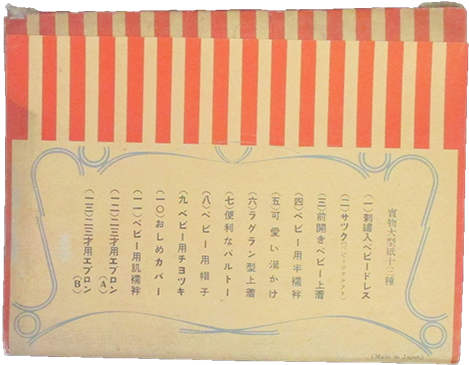 實物大型紙十三種
(一)刺繡入ベビードレス
(二)サツク(ベビージヤケツト)
(三)前開きベビー上着
(四)ベビー用半襦袢
(五)可愛い涎かけ
(六)ラグラン型上着
(七)便利なパルトー
(八)ベビー用帽子
(九)ベビー用チヨツキ
(一〇)おしめカバー
(一一)ベビー用肌襦袢
(一二)二三才用エプロン(A)
(一三)二三才用エプロン(B)
(Made in Japan)